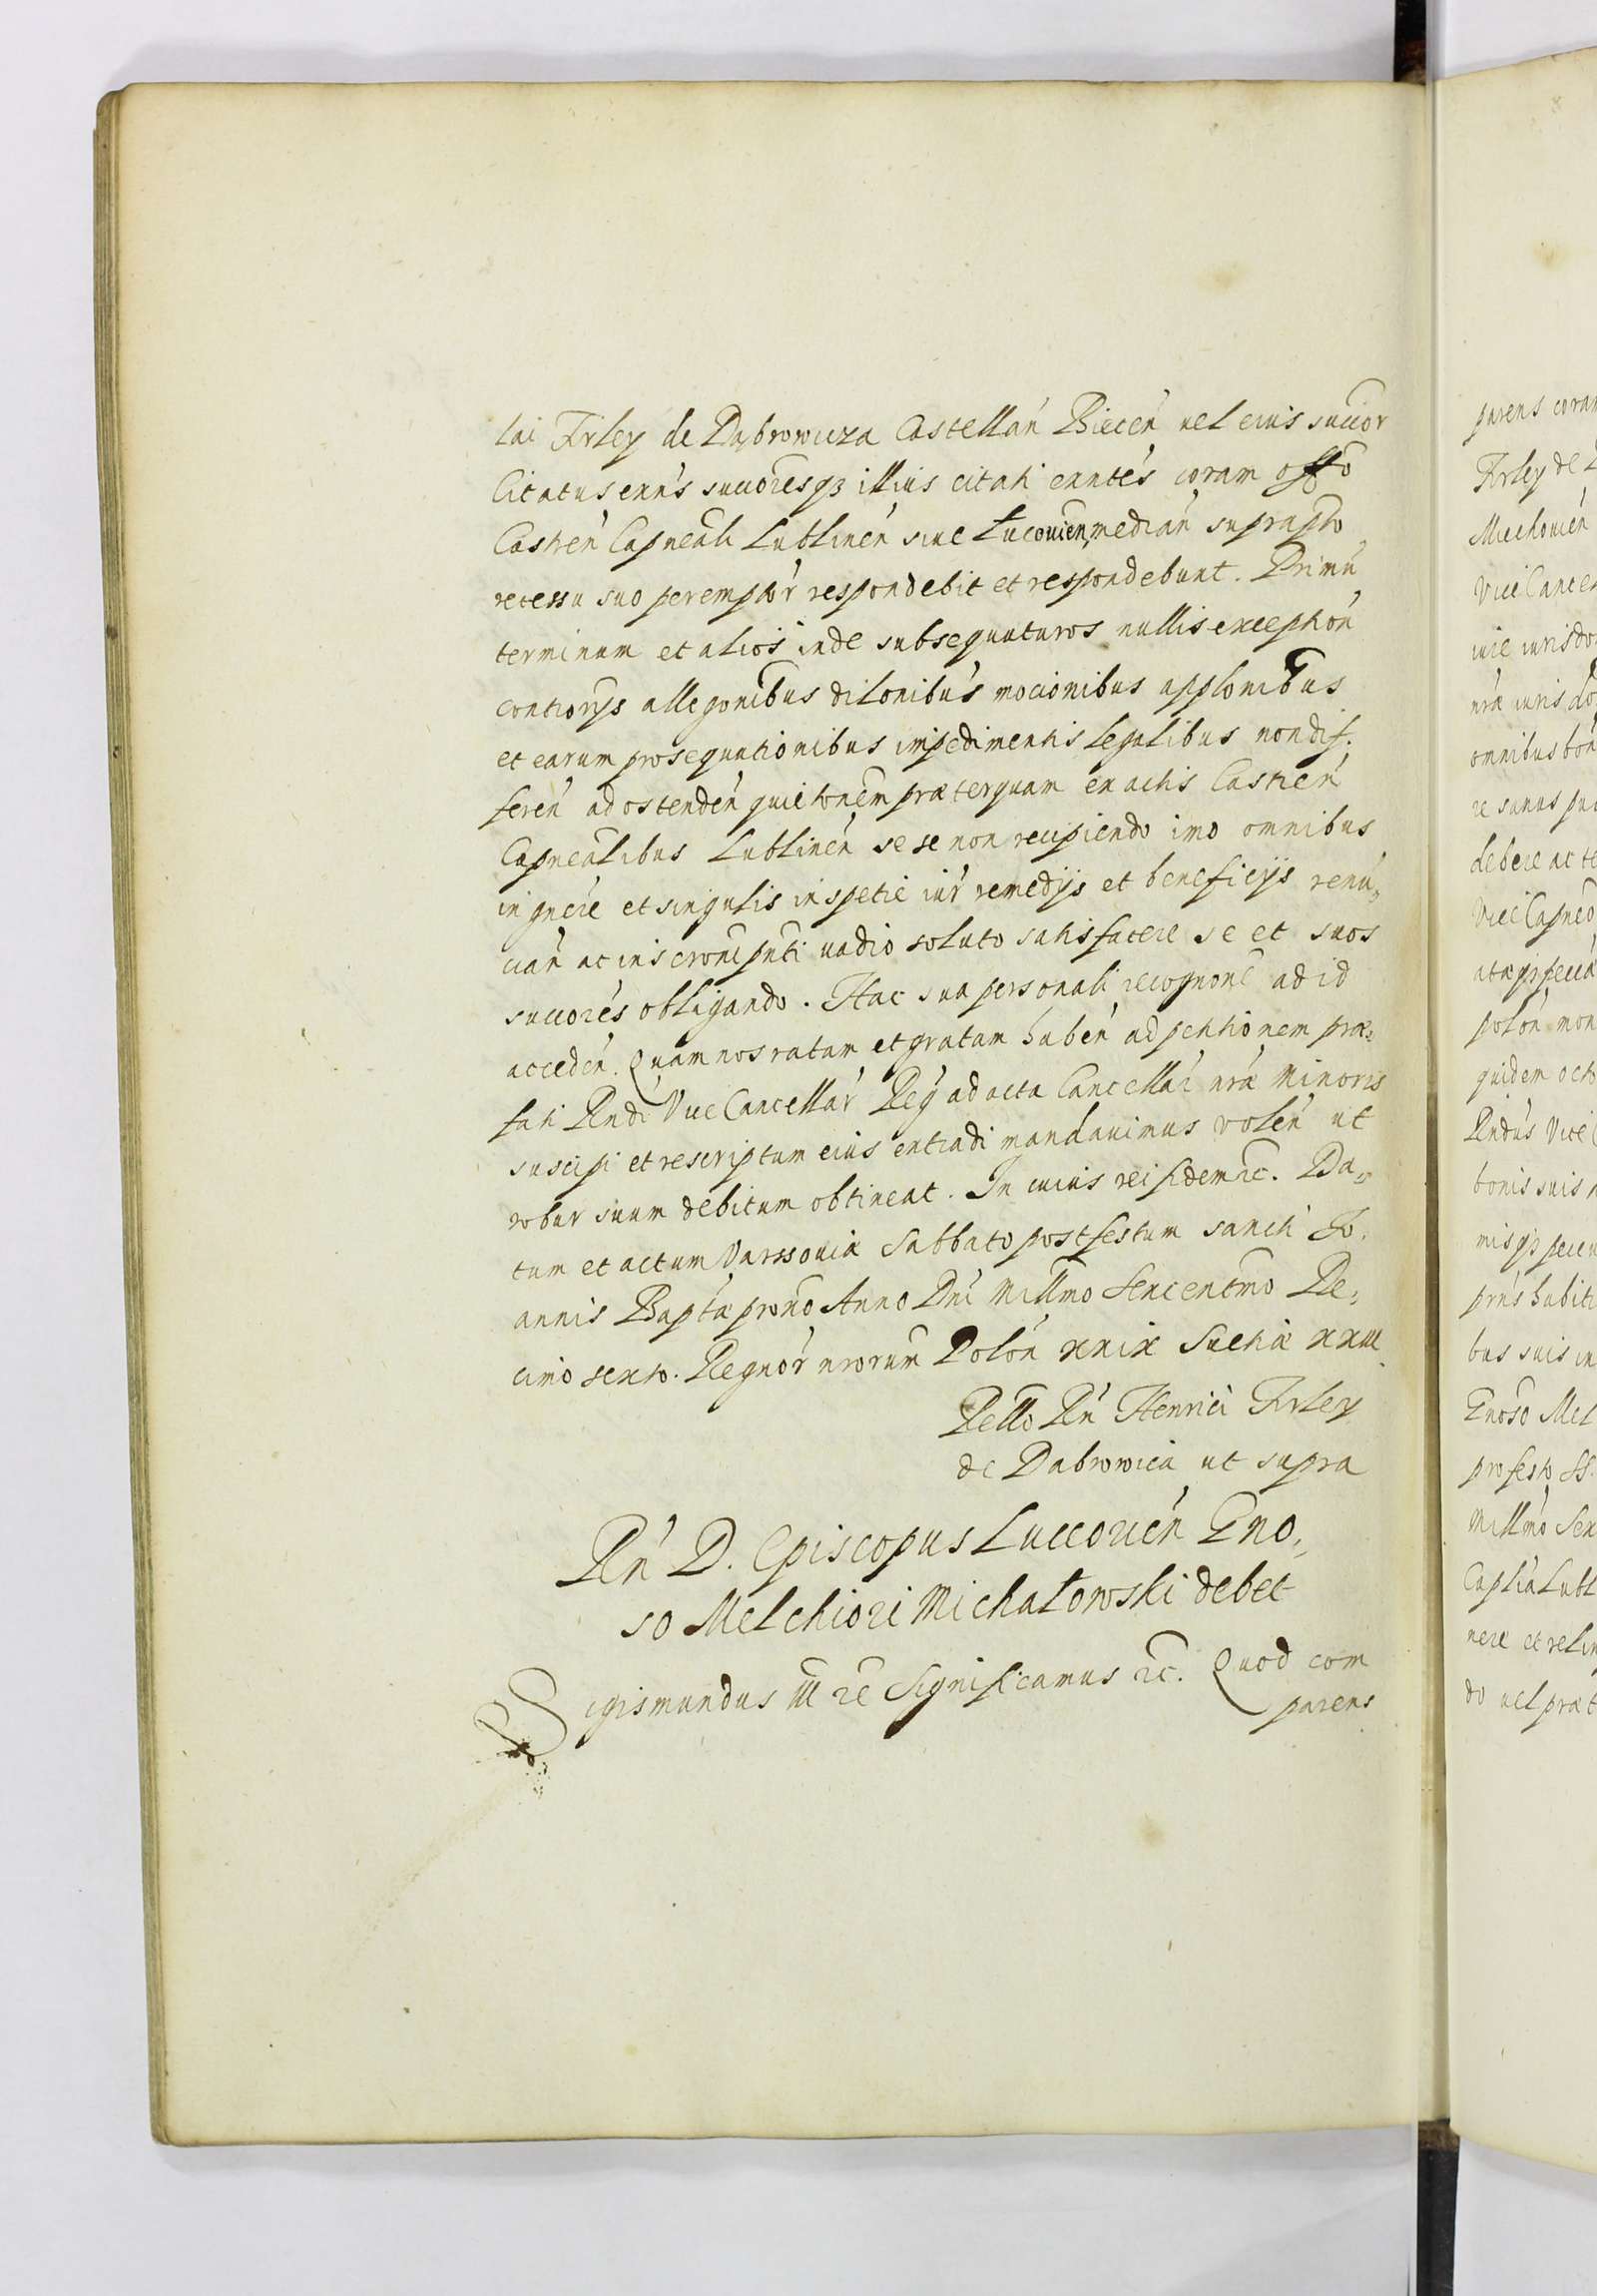 lai Firley de Dąbrowicza Castellań Biecęń uel eius succor
Citatus exńs succores(que) illius citati exntés coram offo
Castreń Capneali Lublineń siue Łucouień, mediań suprapto
recessu suo peremptor respondebit et respondebunt. Primu
terminum et alios inde subsequuturos nullis exception
controrys allegonibus dilonibus mocionibus applonibus
et earum prosequutionibus impedimentis legalibus non dif.
fereń ad ostendeń quietonem præterquam ex actis Castreń
Capnealibus Lublineń sese non recipiendo imo omnibus
in gnere et singulis in spetie iur remedijs et beneficijs renu„
ciań ac inscrone pnti uadio soluto satisfacere se et suos
succores obligando. Hac sua personali recognone ad id
accedeń. Quam nos ratam et gratam habeń ad petitionem præ„
fati Rndi Vice Cancellar Reg ad acta Cancellar nræ Minoris
suscipi et rescriptum eius extradi mandauimus voleń ut
robur suum debitum obtineat. In cuius rei fidem etc. Da„
tum et actum Varssouiæ Sabbato post festum sancti Jo.
annis Baptæ promo Anno Dni Millmo Sexcentmo De„
cimo sexto. Regnor nrorum Poloń xxix Sueciæ xxiii
Rello Rń Henrici Firley
de Dabrowica ut supra
Rń D. Episcopus Luccorień Gno„
so Melchiori Michałowski debet
Sigismundus III etc Significamus etc. Quod com
parens
parens coram
Firley de
Miechouień
Vice Cancel
iure iurisdo
nræ iuris do
omnibus bon
re sanus
debere ac te
Vice Capneo
polon mon
quidem octo
Rndus Vice C
bonis suis
pńs habit
bus suis in
Gnoso Mel
profesto SS.
Millmo Sex
Captia Lubl
nere et relin
do uel præt